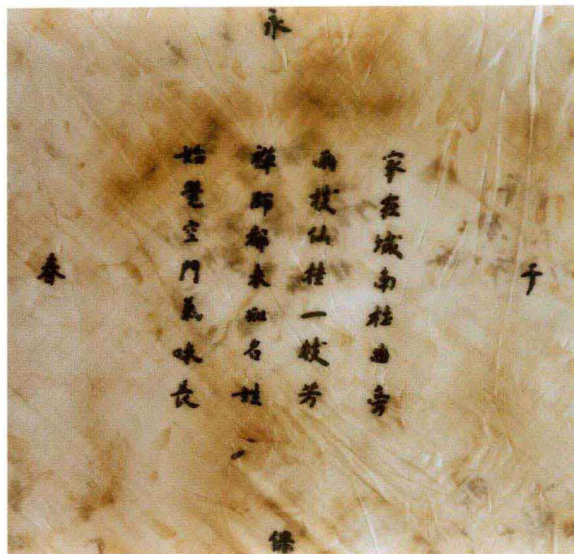 永
千
家在城南杜曲旁
兩枝仙桂一枝芳
禪師都未知名姓
始覺空門氣味長
春
保